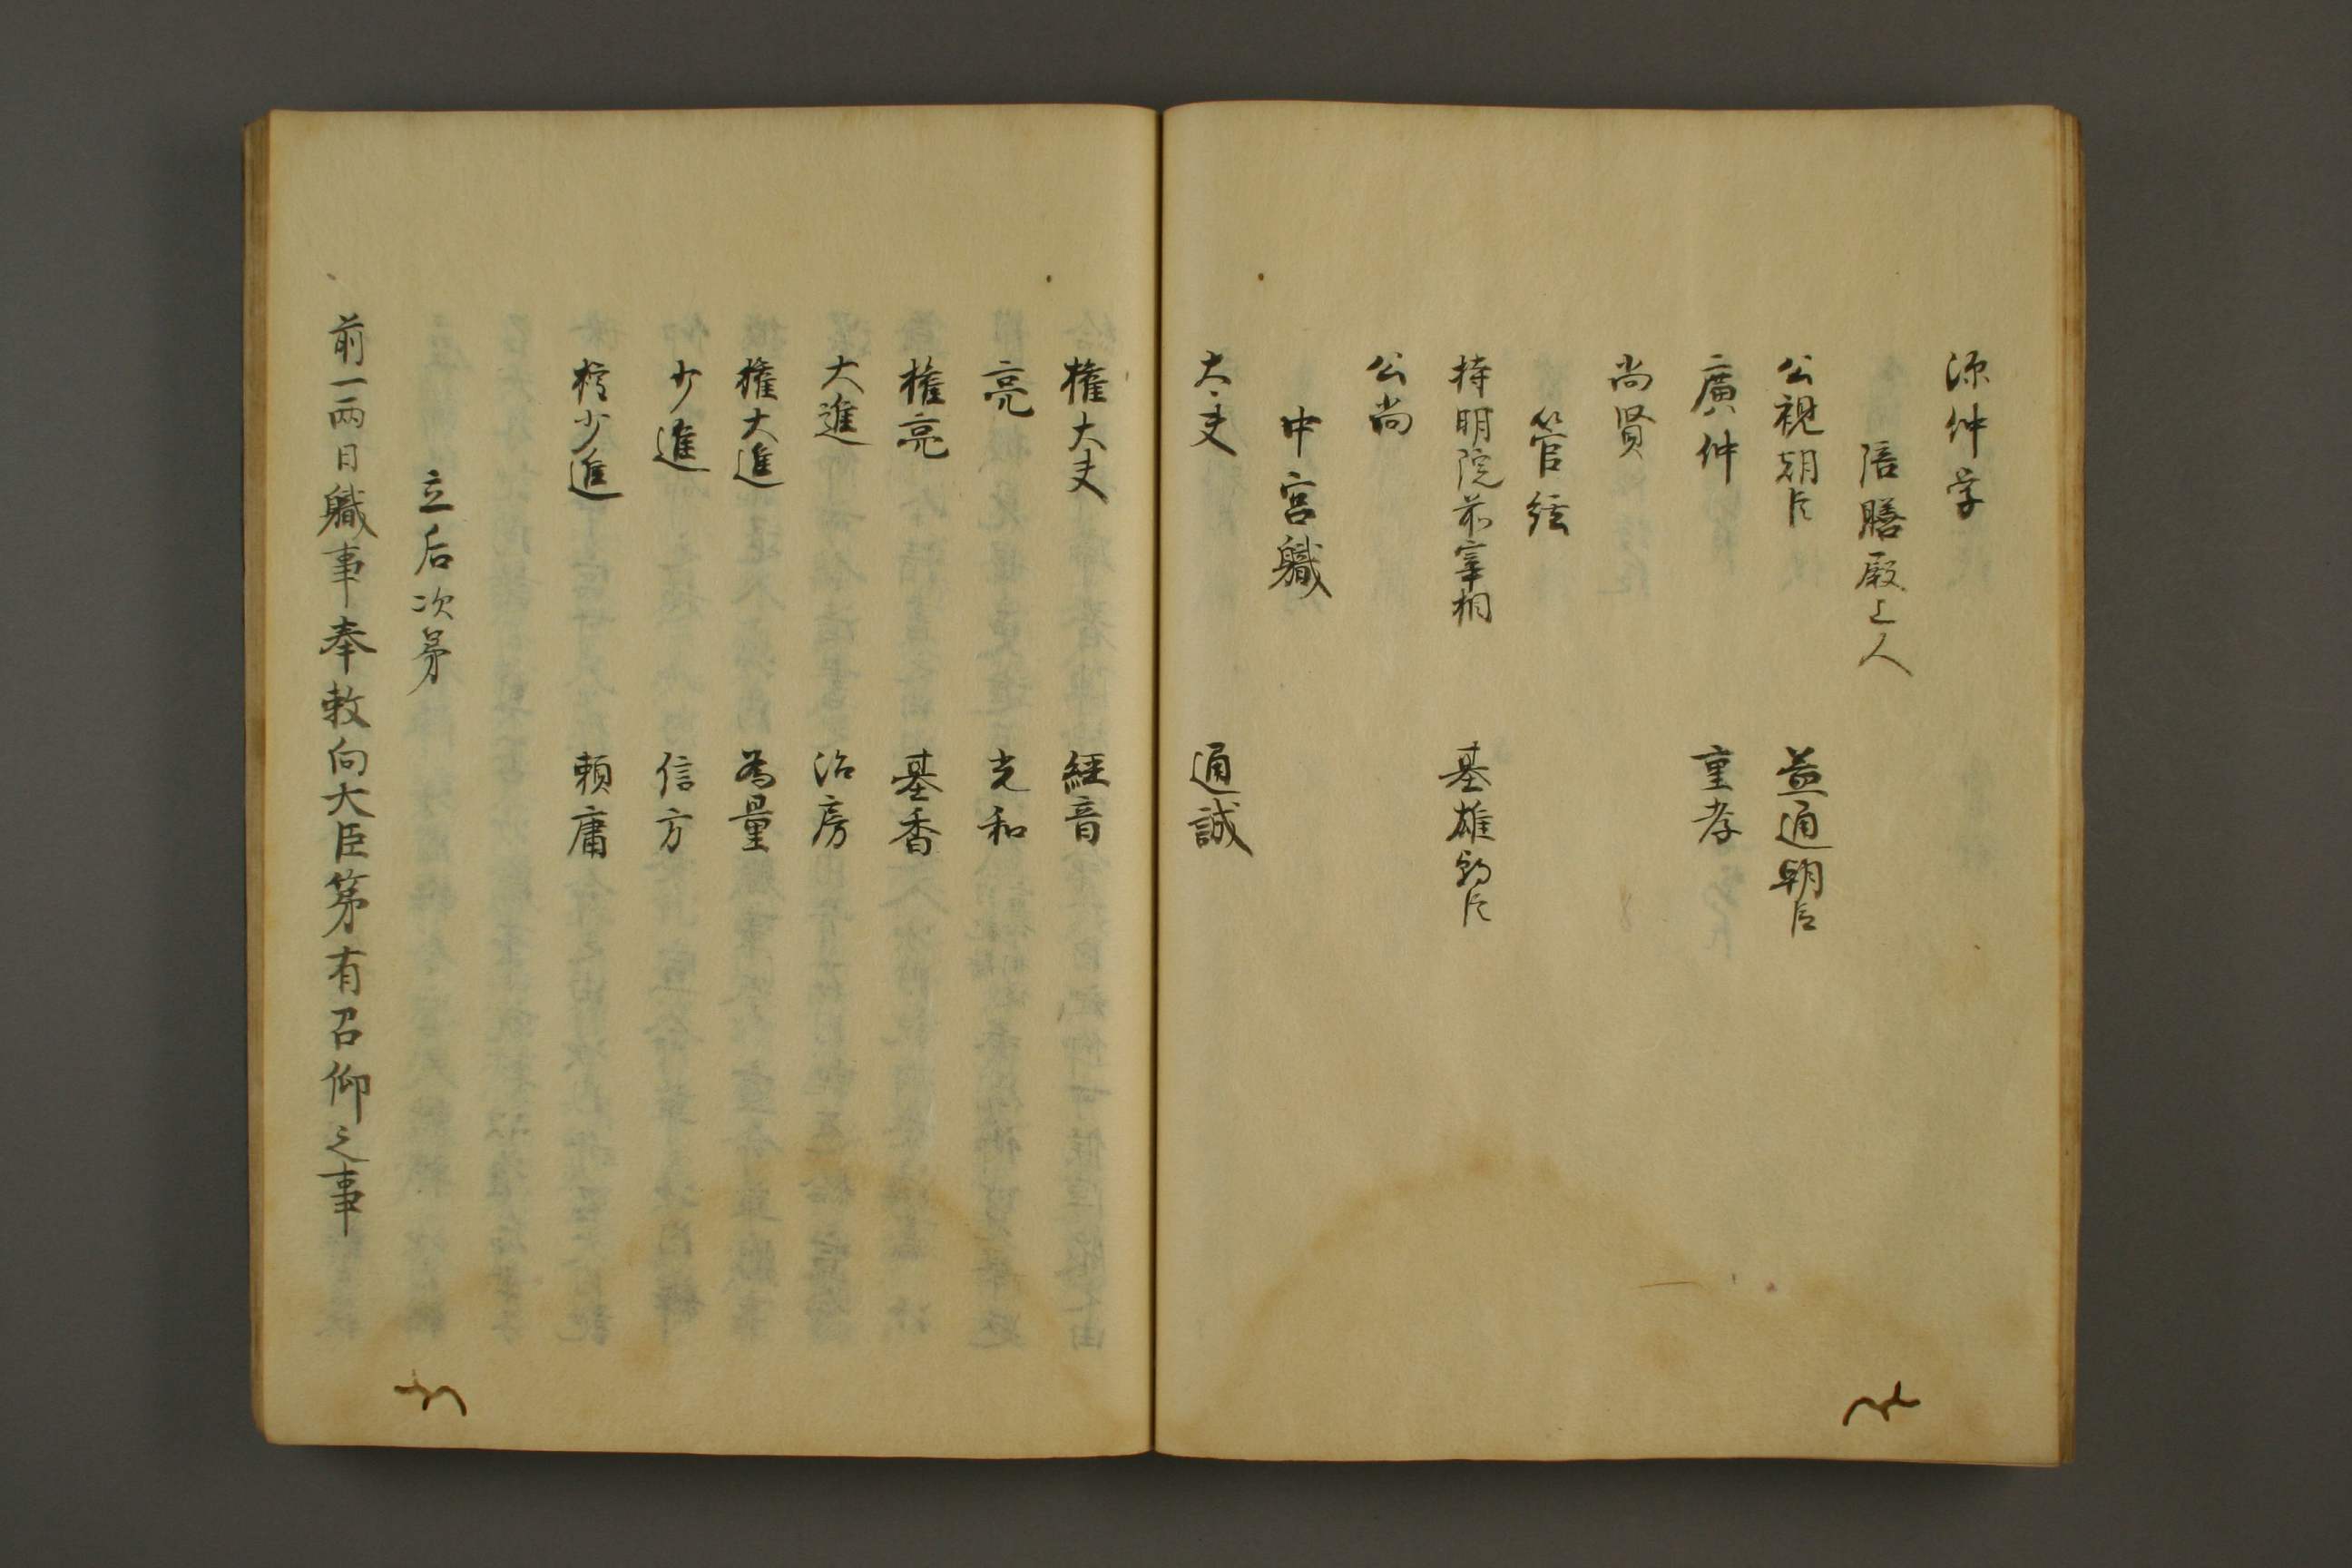 源仲学
陪膳殿上人
公視朝臣 益通朝臣
廣仲 重孝
尚賢
管絃
持明院前宰相 基雄朝臣
公尚
中宮職
大夫 通誠
権大夫 經音
亮 光和
権亮 基香
大進 治房
権大進 為量
少進 信方
権少進 頼庸
立后次第
前一両日職事奉敕向大臣第有召仰之事